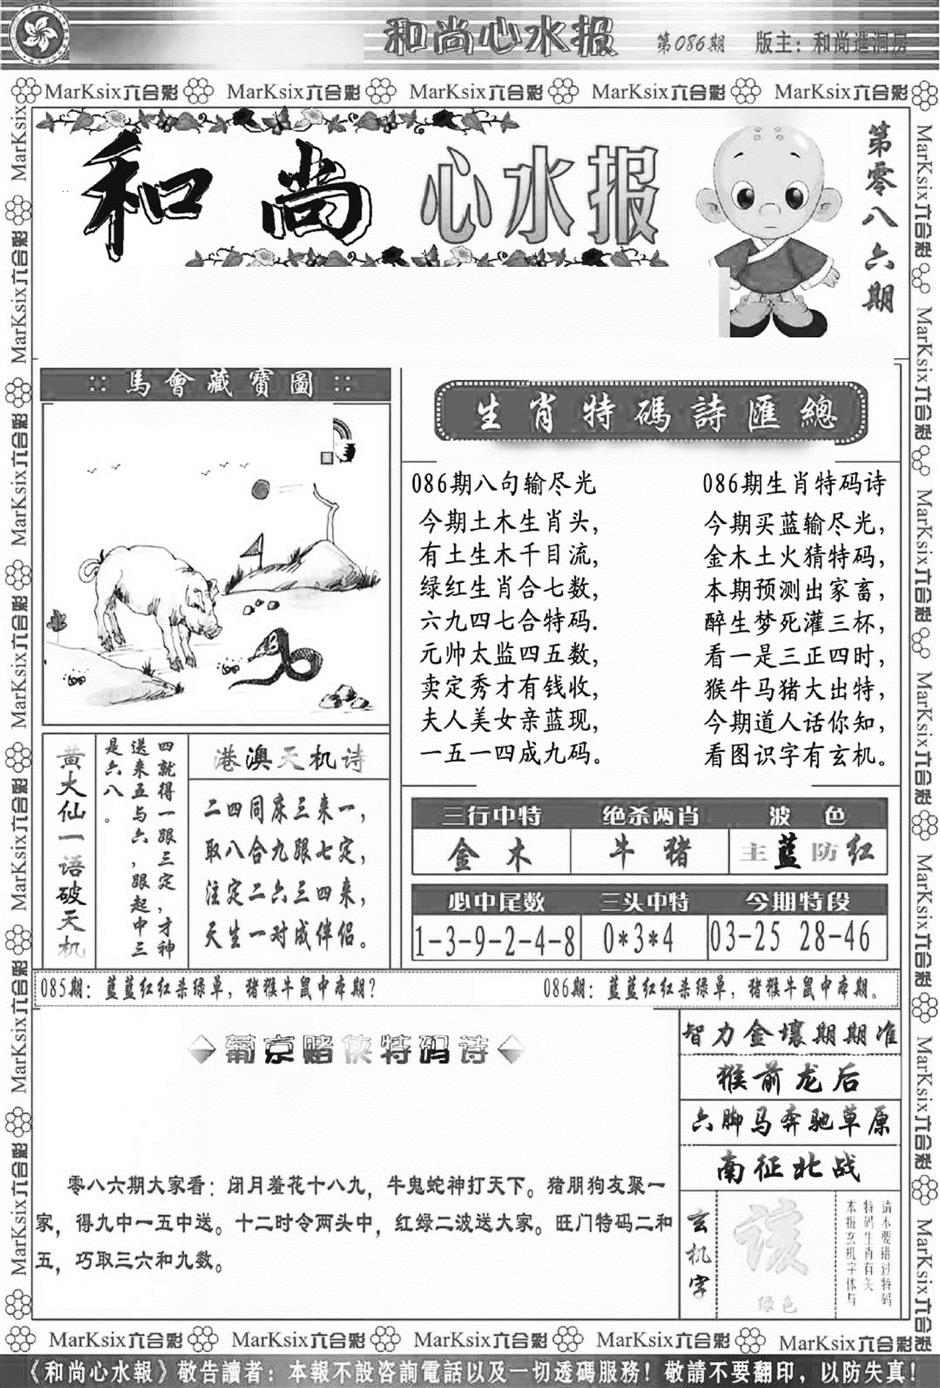 和尚心水报 第086期 版主：和尚造洞房
MarKsix六合彩 MarKsix六合彩 MarKsix六合彩 MarKsix六合彩 MarKsix六合彩
和尚心水报
第零八六期
:: 馬會藏寶圖 ::
生肖特碼詩匯總
086期八句输尽光
今期土木生肖头，
有土生木千目流，
绿红生肖合七数，
六九四七合特码.
元帅太监四五数，
卖定秀才有钱收，
夫人美女亲蓝现，
一五一四成九码。
086期生肖特码诗
今期买蓝输尽光，
金木土火猜特码，
本期预测出家畜，
醉生梦死灌三杯，
看一是三正四时，
猴牛马猪大出特，
今期道人话你知，
看图识字有玄机。
黄大仙一语破天机
四就得一跟三定，才神
送来五与六，跟起中三
是六八。
港澳天机诗
二四同床三来一，
取八合九跟七定，
注定二六三四来，
天生一对成伴侣。
三行中特 绝杀两肖 波色
金木 牛猪 主蓝防红
心中尾数 三头中特 今期特段
1-3-9-2-4-8 0*3*4 03-25 28-46
085期：蓝蓝红红杀绿单，猪猴牛鼠中本期？ 086期：蓝蓝红红杀绿单，猪猴牛鼠中本期。
葡京赌侠特码诗
零八六期大家看：闭月羞花十八九，牛鬼蛇神打天下。猪朋狗友聚一
家，得九中一五中送。十二时令两头中，红绿二波送大家。旺门特码二和
五，巧取三六和九数。
智力金壤期期准
猴前龙后
六脚马奔驰草原
南征北战
玄机字
该
绿色
请不要错过特码
特码生肖有关
本报玄机字体与
MarKsix六合彩 MarKsix六合彩 MarKsix六合彩 MarKsix六合彩 MarKsix六合彩
《和尚心水報》敬告讀者：本報不設咨詢電話以及一切透碼服務！敬請不要翻印，以防失真！